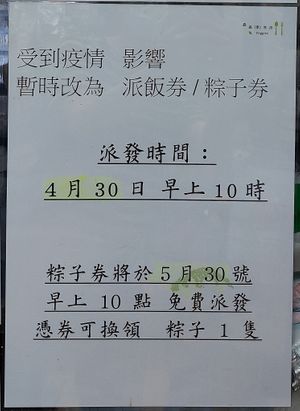 受到疫情 影響
暫時改為 派飯券/粽子券
派發時間：
4月30日早上10時
粽子券將於5月30號
早上10點 免費派發
憑券可換領 粽子1隻